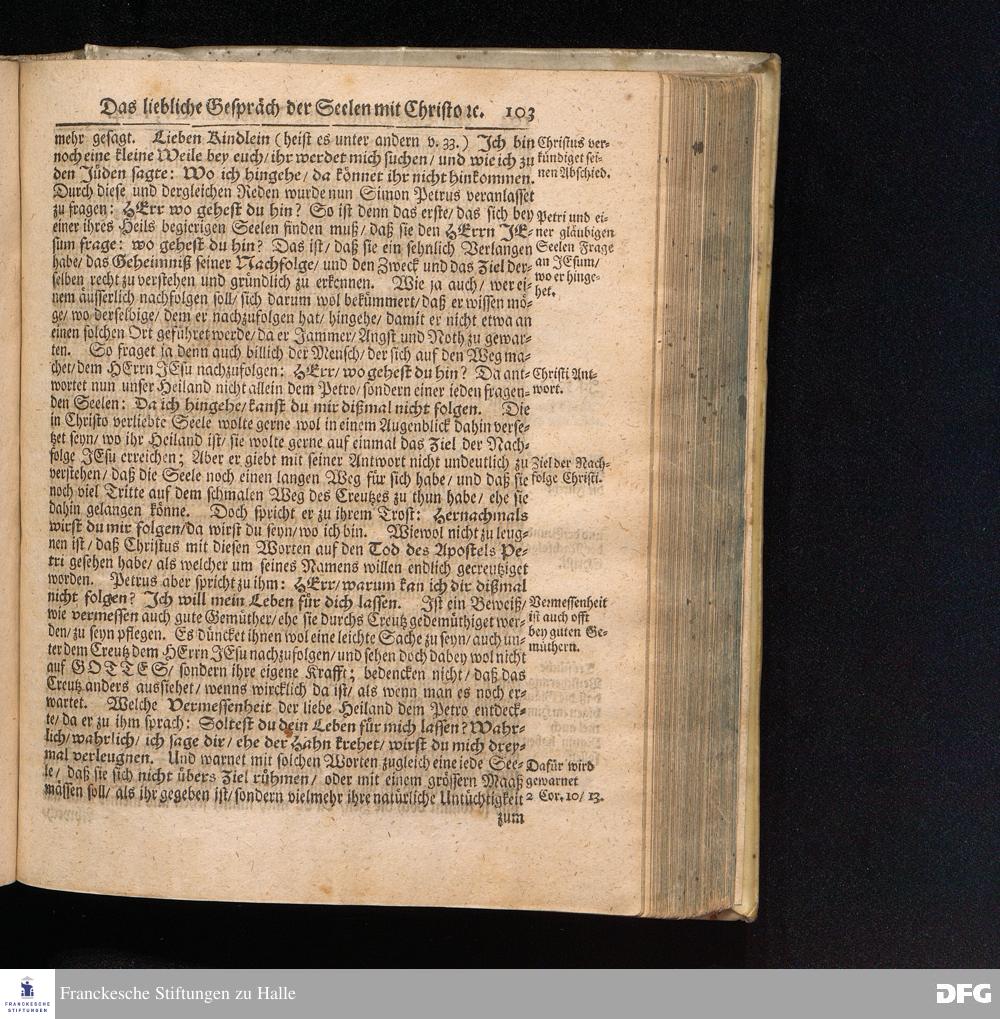 Das liebliche Gespräch der Seelen mit Christo ꝛc. 103
mehr gesagt. Lieben Kindlein (heist es unter andern v. 33.) Ich bin
noch eine kleine Weile bey euch/ ihr werdet mich suchen/ und wie ich zu
den Jüden sagte: Wo ich hingehe/ da könnet ihr nicht hinkommen.
Durch diese und dergleichen Reden wurde nun Simon Petrus veranlasset
zu fragen: HErr wo gehest du hin? So ist denn das erste/ das sich bey
einer ihres Heils begierigen Seelen finden muß/ daß sie den HErrn JE-
sum frage: wo gehest du hin? Das ist/ daß sie ein sehnlich Verlangen
habe/ das Geheimniß seiner Nachfolge/ und den Zweck und das Ziel der-
selben recht zu verstehen und gründlich zu erkennen. Wie ja auch/ wer ei-
nem äusserlich nachfolgen soll/ sich darum wol bekümmert/ daß er wissen mö-
ge/ wo derselbige/ dem er nachzufolgen hat/ hingehe/ damit er nicht etwa an
einen solchen Ort geführet werde/ da er Jammer/ Angst und Noth zu gewar-
ten. So fraget ja denn auch billich der Mensch/ der sich auf den Weg ma-
chet/ dem HErrn JEsu nachzufolgen: HErr/ wo gehest du hin? Da ant-
wortet nun unser Heiland nicht allein dem Petro/ sondern einer ieden fragen-
den Seelen: Da ich hingehe/ kanst du mir dißmal nicht folgen. Die
in Christo verliebte Seele wolte gerne wol in einem Augenblick dahin verse-
tzet seyn/ wo ihr Heiland ist/ sie wolte gerne auf einmal das Ziel der Nach-
folge JEsu erreichen; Aber er giebt mit seiner Antwort nicht undeutlich zu
verstehen/ daß die Seele noch einen langen Weg für sich habe/ und daß sie
noch viel Tritte auf dem schmalen Weg des Creutzes zu thun habe/ ehe sie
dahin gelangen könne. Doch spricht er zu ihrem Trost: Hernachmals
wirst du mir folgen/ da wirst du seyn/ wo ich bin. Wiewol nicht zu leug-
nen ist/ daß Christus mit diesen Worten auf den Tod des Apostels Pe-
tri gesehen habe/ als welcher um seines Namens willen endlich gecreutziget
worden. Petrus aber spricht zu ihm: HErr/ warum kan ich dir dißmal
nicht folgen? Ich will mein Leben für dich lassen. Ist ein Beweiß/
wie vermessen auch gute Gemüther/ ehe sie durchs Creutz gedemüthiget wer-
den/ zu seyn pflegen. Es düncket ihnen wol eine leichte Sache zu seyn/ auch un-
ter dem Creutz dem HErrn JEsu nachzufolgen/ und sehen doch dabey wol nicht
auf GOTTES/ sondern ihre eigene Krafft; bedencken nicht/ daß das
Creutz anders aussiehet/ wenns wircklich da ist/ als wenn man es noch er-
wartet. Welche Vermessenheit der liebe Heiland dem Petro entdeck-
te/ da er zu ihm sprach: Soltest du dein Leben für mich lassen? Wahr-
lich/ wahrlich/ ich sage dir/ ehe der Hahn krehet/ wirst du mich drey-
mal verleugnen. Und warnet mit solchen Worten zugleich eine iede See-
le/ daß sie sich nicht übers Ziel rühmen/ oder mit einem grössern Maaß
mässen soll/ als ihr gegeben ist/ sondern vielmehr ihre natürliche Untüchtigkeit
zum
Christus ver-
kündiget sei-
nen Abschied.
Petri und ei-
ner gläubigen
Seelen Frage
an JEsum/
wo er hinge-
het.
Christi Ant-
wort.
Ziel der Nach-
folge Christi.
Vermessenheit
ist auch offt
bey guten Ge-
müthern.
Dafür wird
gewarnet
2 Cor. 10/ 13.
FRANCKESCHE
STIFTUNGEN
Franckesche Stiftungen zu Halle
DFG